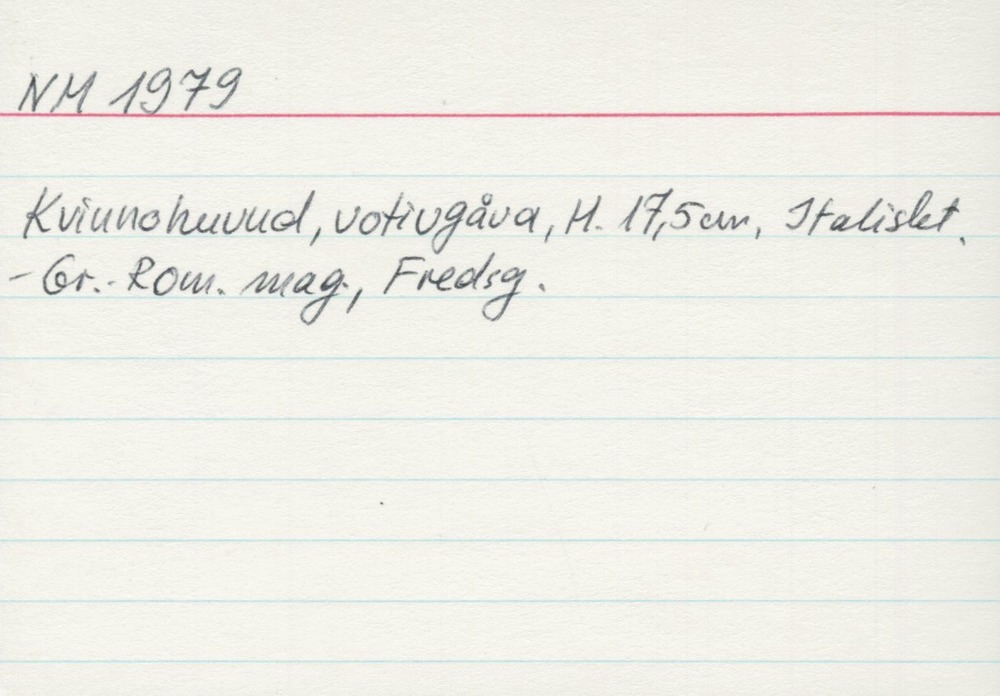 NM 1979
Kvinnohuvud, votivgåva, H. 17,5 cm, Italiskt.
- Gr.-Rom. mag., Fredsg.